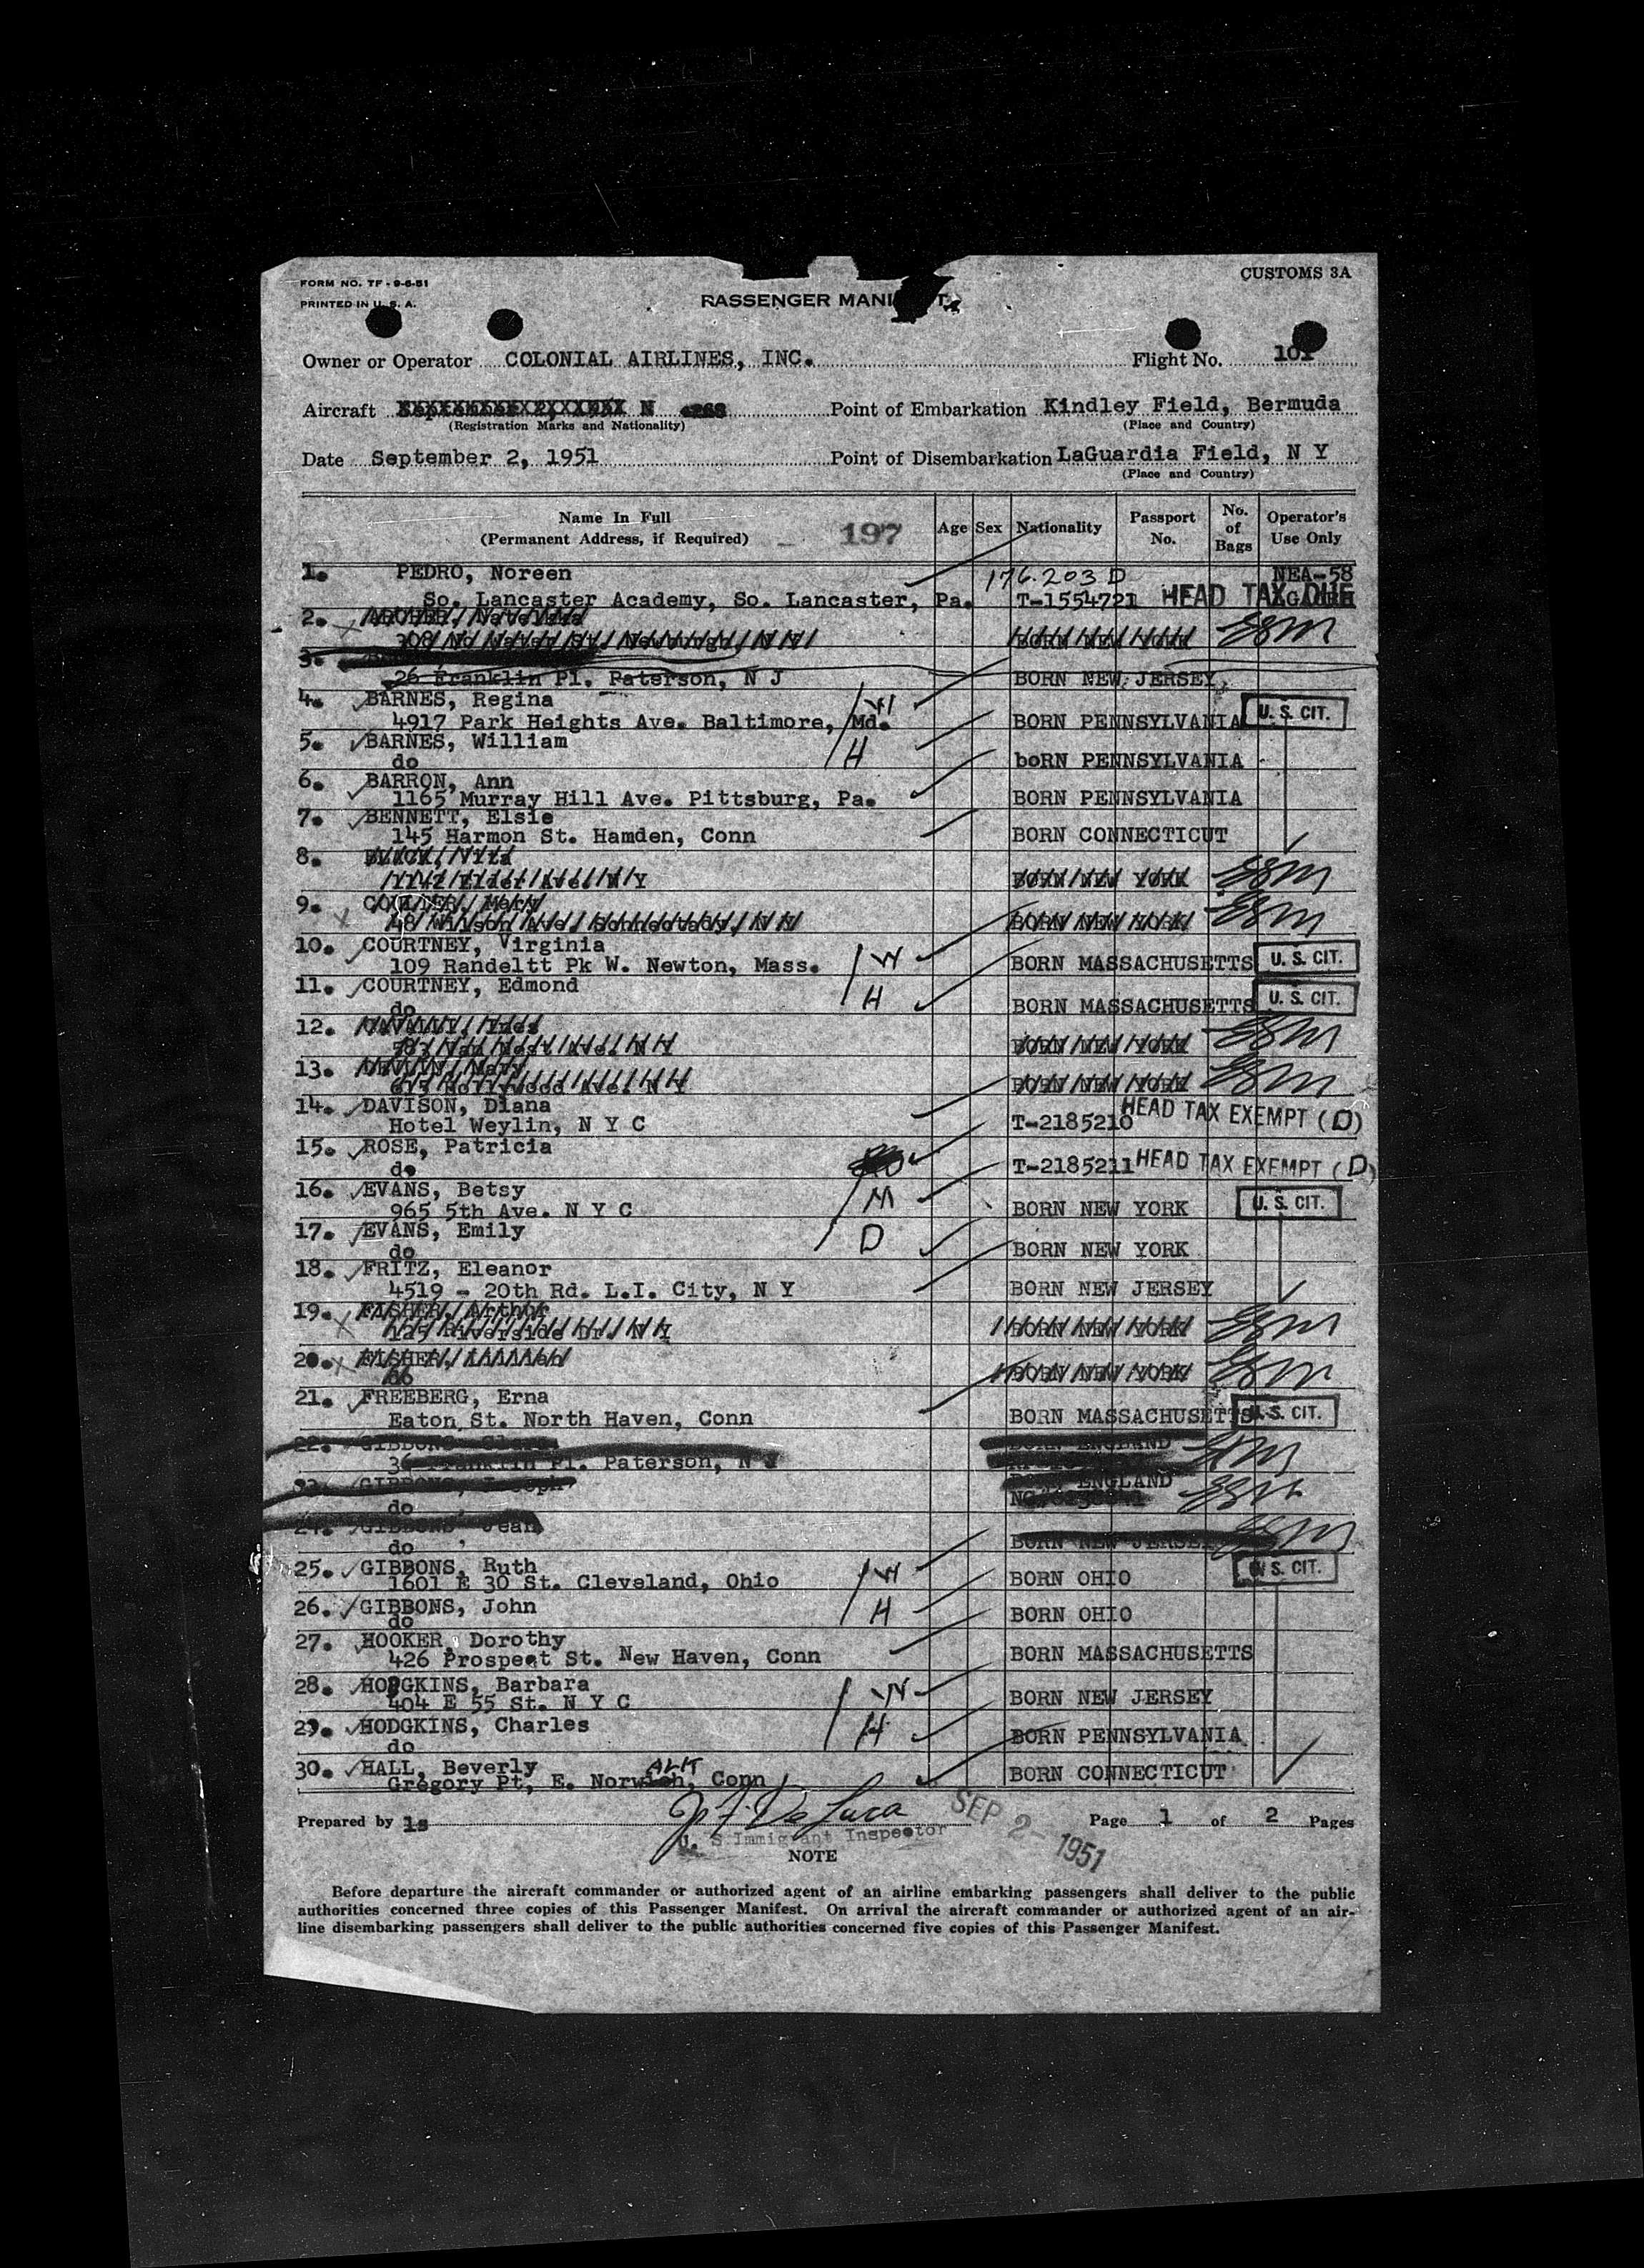 FORM NO. TF - 9-6-51
CUSTOMS 3A
PRINTED IN U. S. A.
PASSENGER MANI T
Owner or Operator COLONIAL AIRLINES, INC. Flight No. 101
Aircraft N Point of Embarkation Kindley Field, Bermuda
(Registration Marks and Nationality) (Place and Country)
Date September 2, 1951 Point of Disembarkation LaGuardia Field, N Y
(Place and Country)
Name In Full Age Sex Nationality Passport No. No. of Bags Operator's Use Only
(Permanent Address, if Required) 197
1. PEDRO, Noreen 176.203 D NEA-58
So. Lancaster Academy, So. Lancaster, Pa. T-1554721 HEAD TAX DUE
2.
BORN NEW YORK
3.
26 Franklin Pl. Paterson, N J BORN NEW JERSEY
4. BARNES, Regina W
4917 Park Heights Ave. Baltimore, Md. BORN PENNSYLVANIA U. S. CIT.
5. BARNES, William H
do boRN PENNSYLVANIA
6. BARRON, Ann
1165 Murray Hill Ave. Pittsburg, Pa. BORN PENNSYLVANIA
7. BENNETT, Elsie
145 Harmon St. Hamden, Conn BORN CONNECTICUT
8.
BORN NEW YORK
9. Mary
48 Wilson Ave. Schenectady, N Y BORN NEW YORK
10. COURTNEY, Virginia W
109 Randeltt Pk W. Newton, Mass. BORN MASSACHUSETTS U. S. CIT.
11. COURTNEY, Edmond H
do BORN MASSACHUSETTS U. S. CIT.
12.
BORN NEW YORK
13. Mary
615 Hollywood Ave. N Y BORN NEW YORK
14. DAVISON, Diana
Hotel Weylin, N Y C T-2185210 HEAD TAX EXEMPT (D)
15. ROSE, Patricia
do T-2185211 HEAD TAX EXEMPT (D)
16. EVANS, Betsy M
965 5th Ave. N Y C BORN NEW YORK U. S. CIT.
17. EVANS, Emily D
do BORN NEW YORK
18. FRITZ, Eleanor
4519 - 20th Rd. L.I. City, N Y BORN NEW JERSEY
19. FISHER, Arthur
125 Riverside Dr. N Y BORN NEW YORK
20. FISHER, Lillian
do BORN NEW YORK
21. FREEBERG, Erna
Eaton St. North Haven, Conn BORN MASSACHUSETTS U. S. CIT.
22. GIBBONS, BORN ENGLAND
Franklin Pl. Paterson, N J
23. GIBBONS, Joseph ENGLAND
do
24. GIBBONS, Jean
do BORN NEW JERSEY
25. GIBBONS, Ruth W
1601 E 30 St. Cleveland, Ohio BORN OHIO U. S. CIT.
26. GIBBONS, John H
do BORN OHIO
27. HOOKER, Dorothy
426 Prospect St. New Haven, Conn BORN MASSACHUSETTS
28. HODGKINS, Barbara W
404 E 55 St. N Y C BORN NEW JERSEY
29. HODGKINS, Charles H
do BORN PENNSYLVANIA
30. HALL, Beverly
Gregory Pt, E. Norwalk, Conn BORN CONNECTICUT
Prepared by ls J. F. De Luca SEP 2- 1951 Page 1 of 2 Pages
U. S Immigrant Inspector
NOTE
Before departure the aircraft commander or authorized agent of an airline embarking passengers shall deliver to the public
authorities concerned three copies of this Passenger Manifest. On arrival the aircraft commander or authorized agent of an air-
line disembarking passengers shall deliver to the public authorities concerned five copies of this Passenger Manifest.